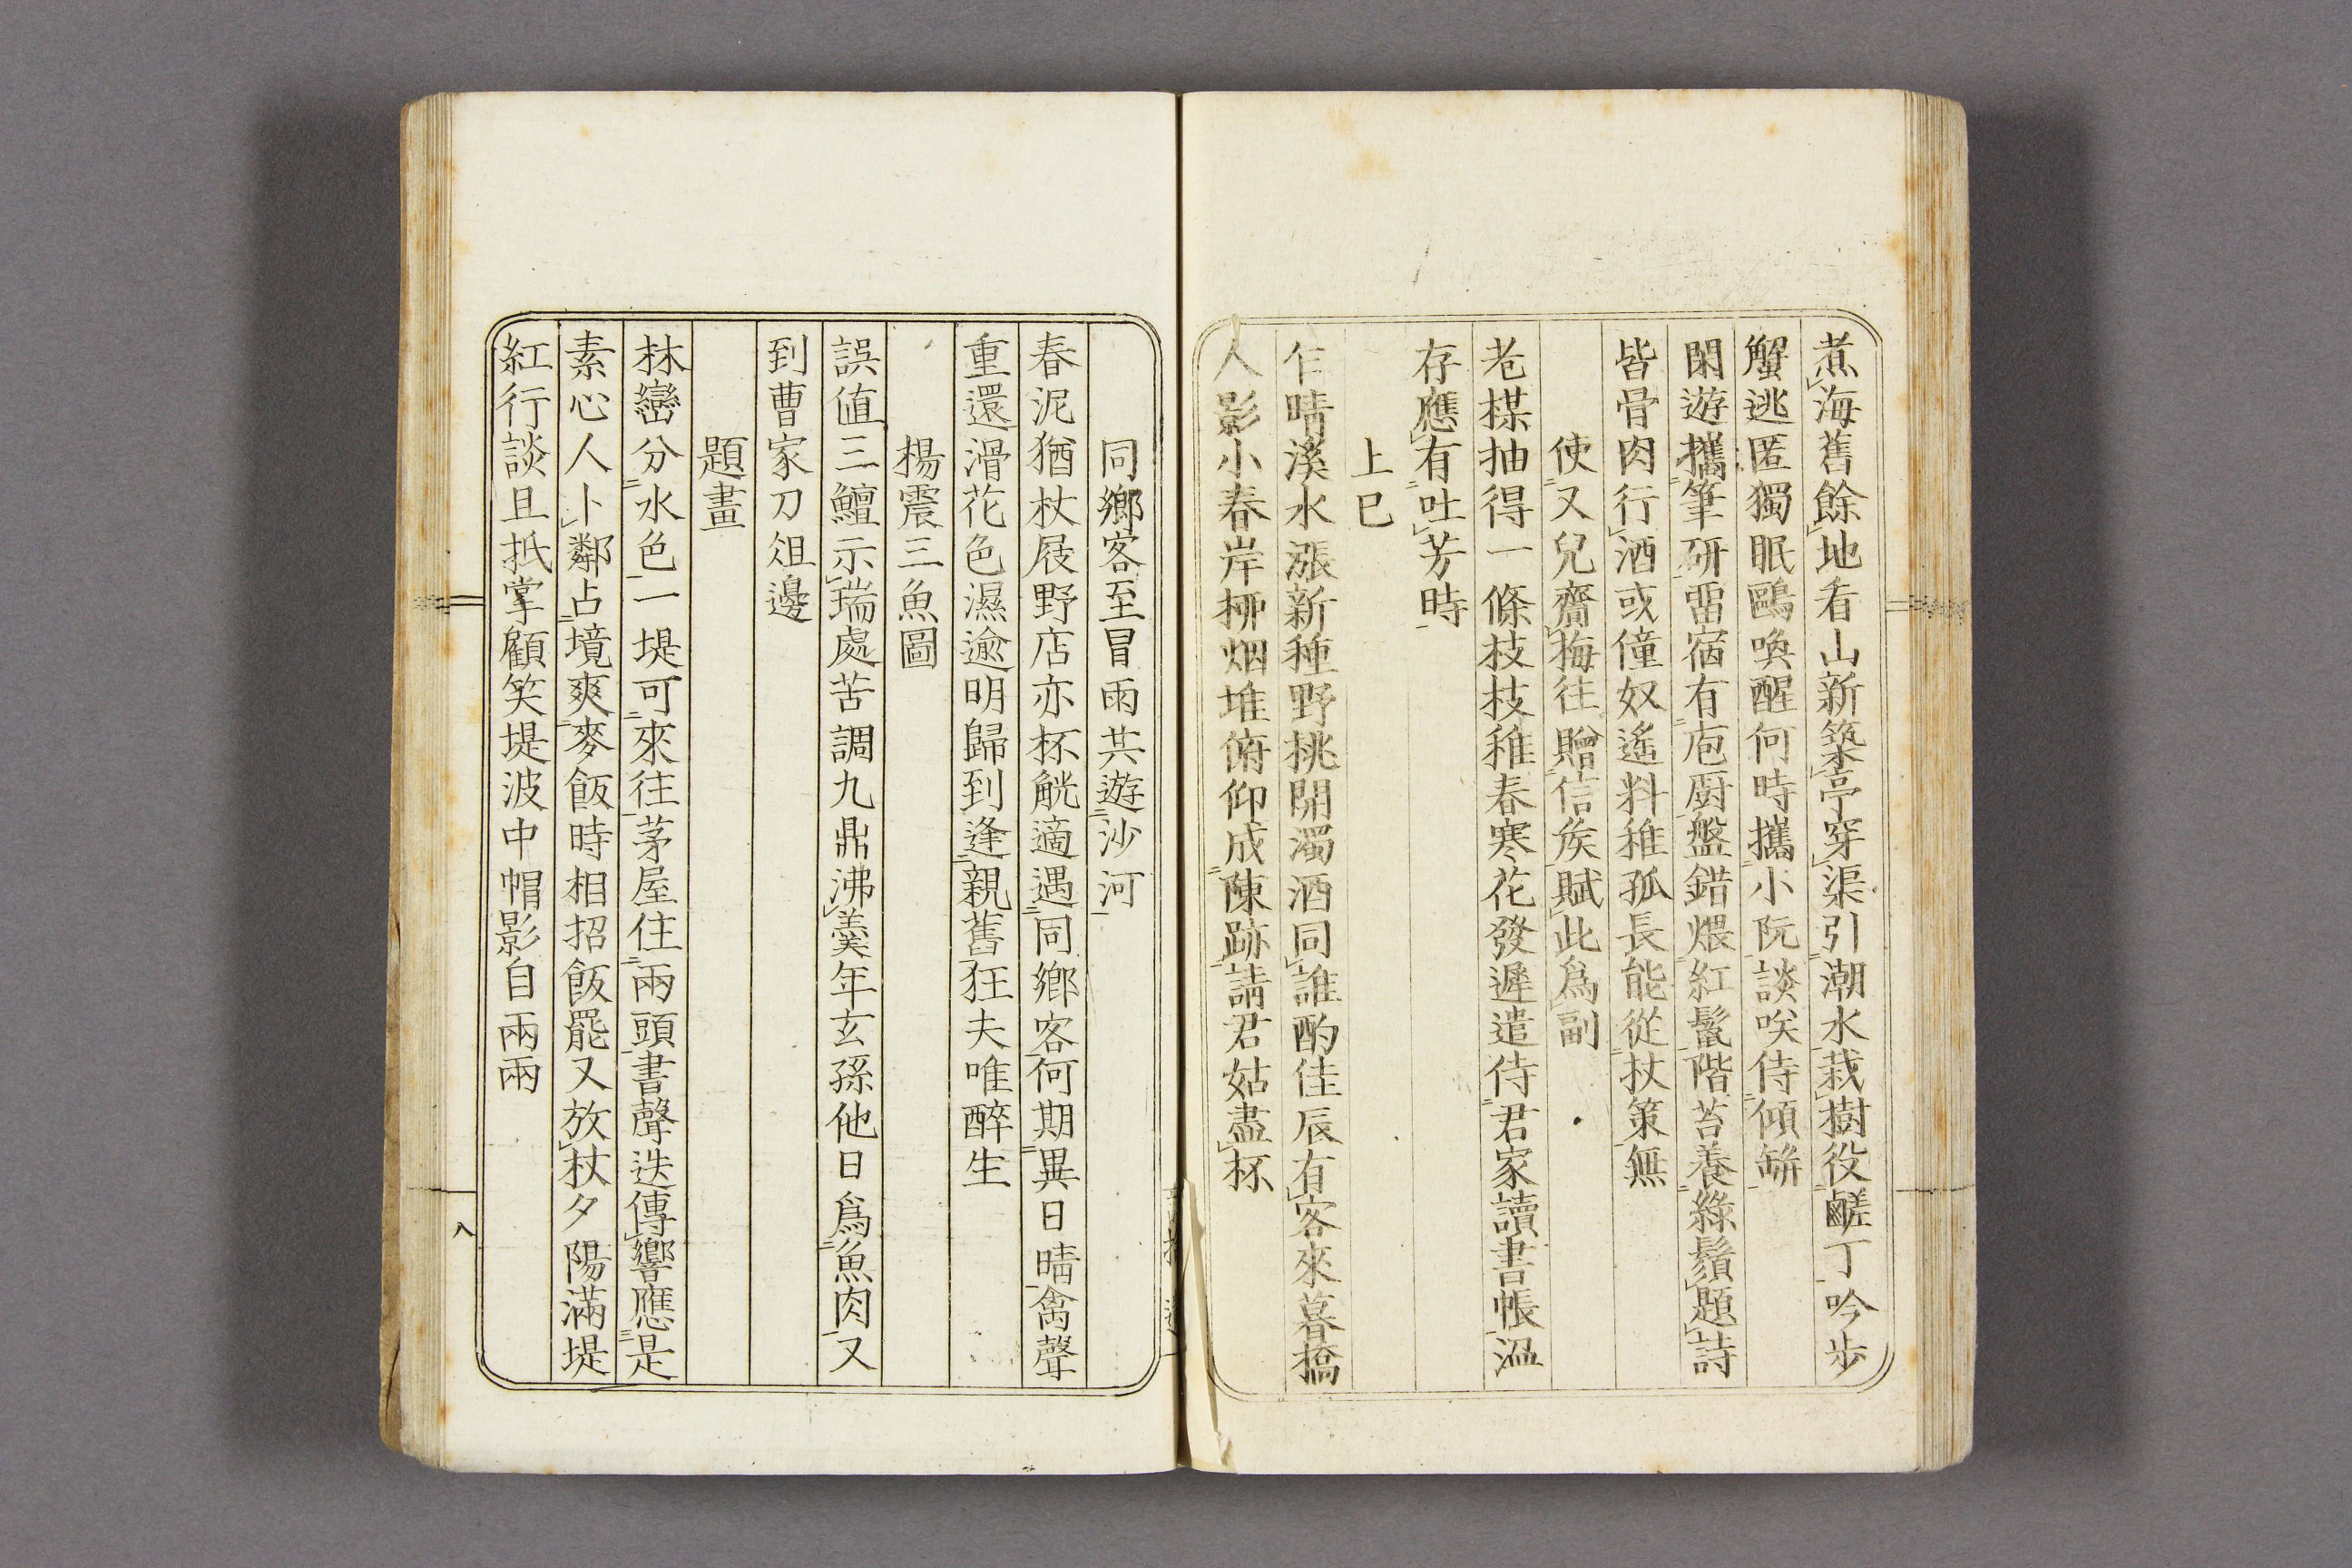 煮海舊餘地看山新築亭穿渠引潮水栽樹役鹺丁吟歩
蟹逃匿獨眠鷗喚醒何時攜小阮談咲侍傾缾
閑遊攜筆研畱宿有庖厨盤錯煨紅鬣階苔養綠鬚題詩
皆骨肉行酒或僮奴遙料稚孤長能從杖策無
使又兒齎梅往贈信矦賦此爲副
老楳抽得一條枝枝稚春寒花發遲遣侍君家讀書帳溫
存應有吐芳時
上巳
乍晴溪水漲新種野桃開濁酒同誰酌佳辰有客來暮橋
人影小春岸栁烟堆俯仰成陳跡請君姑盡杯
同鄉客至冒雨共遊沙河
春泥猶杖屐野店亦杯觥適遇同鄉客何期異日晴禽聲
重還滑花色濕逾明歸到逢親舊狂夫唯醉生
楊震三魚圖
誤值三鱣示瑞處苦調九鼎沸羹年玄孫他日爲魚肉又
到曹家刀俎邊
題畫
林巒分水色一堤可來往茅屋住兩頭書聲迭傳響應是
素心人卜鄰占境爽麥飯時相招飯罷又放杖夕陽滿堤
紅行談且抵掌顧笑堤波中帽影自兩兩
八